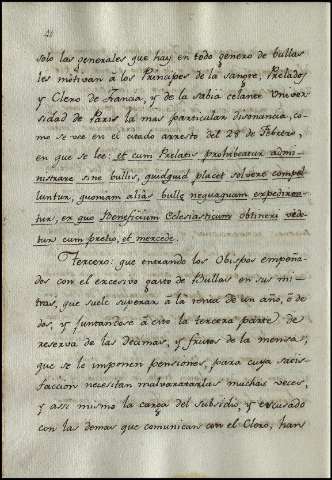 solo las generales que hay en todo genero de bullas
les motivan à los Principes de la sangre, Prelados
y Clero de Francia, y de la sabia celante Univer
sidad de Paris la mas particular disonancia, co-
mo se vee en el citado arresto del 28 de Febrero,
en que se lee: et cum Prelatis prohibeatur admi-
nistrare sine bullis, quidquid placet solvere compel
luntur, quoniam alias bulle nequaquam expediren-
tur, ex quo Beneficium Eclesiasticum obtineri vide-
tur cum pretio, et mercede.
Tercero: que entrando los Obispos empeña-
dos con el excesivo gasto de Bullas en sus mi-
tras, que suele superar à la renta de un año, ò de
dos, y juntandose à esto la tercera parte de
reserva de las Decimas, y frutos de la mensa,
que se le imponen pensiones, para cuya satis-
faccion necesitan malvaratarlas muchas veces,
y assi mismo la carga del subsidio, y escusado
con las demas que comunican con el Clero, hans